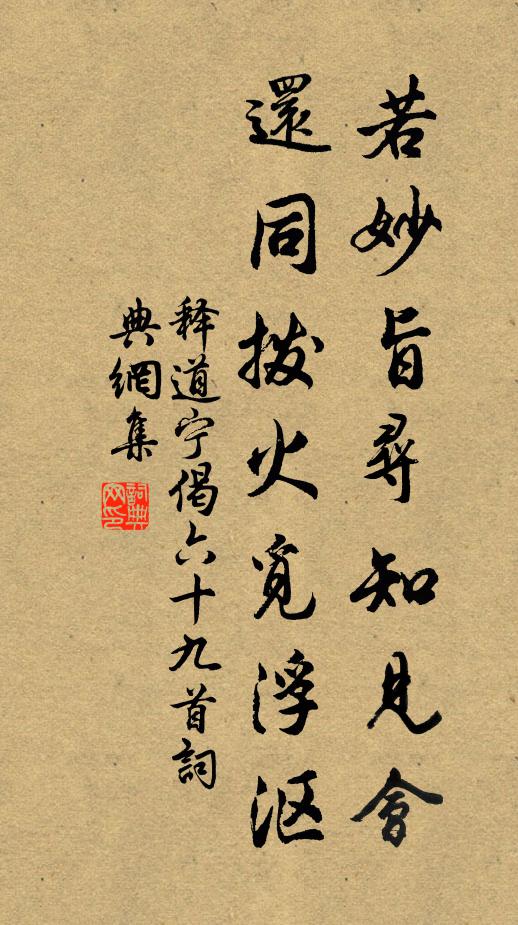 若妙旨尋知見會
還同撥火覓浮沤
释道宁偈六十九首詞
典網集
詞典
网印